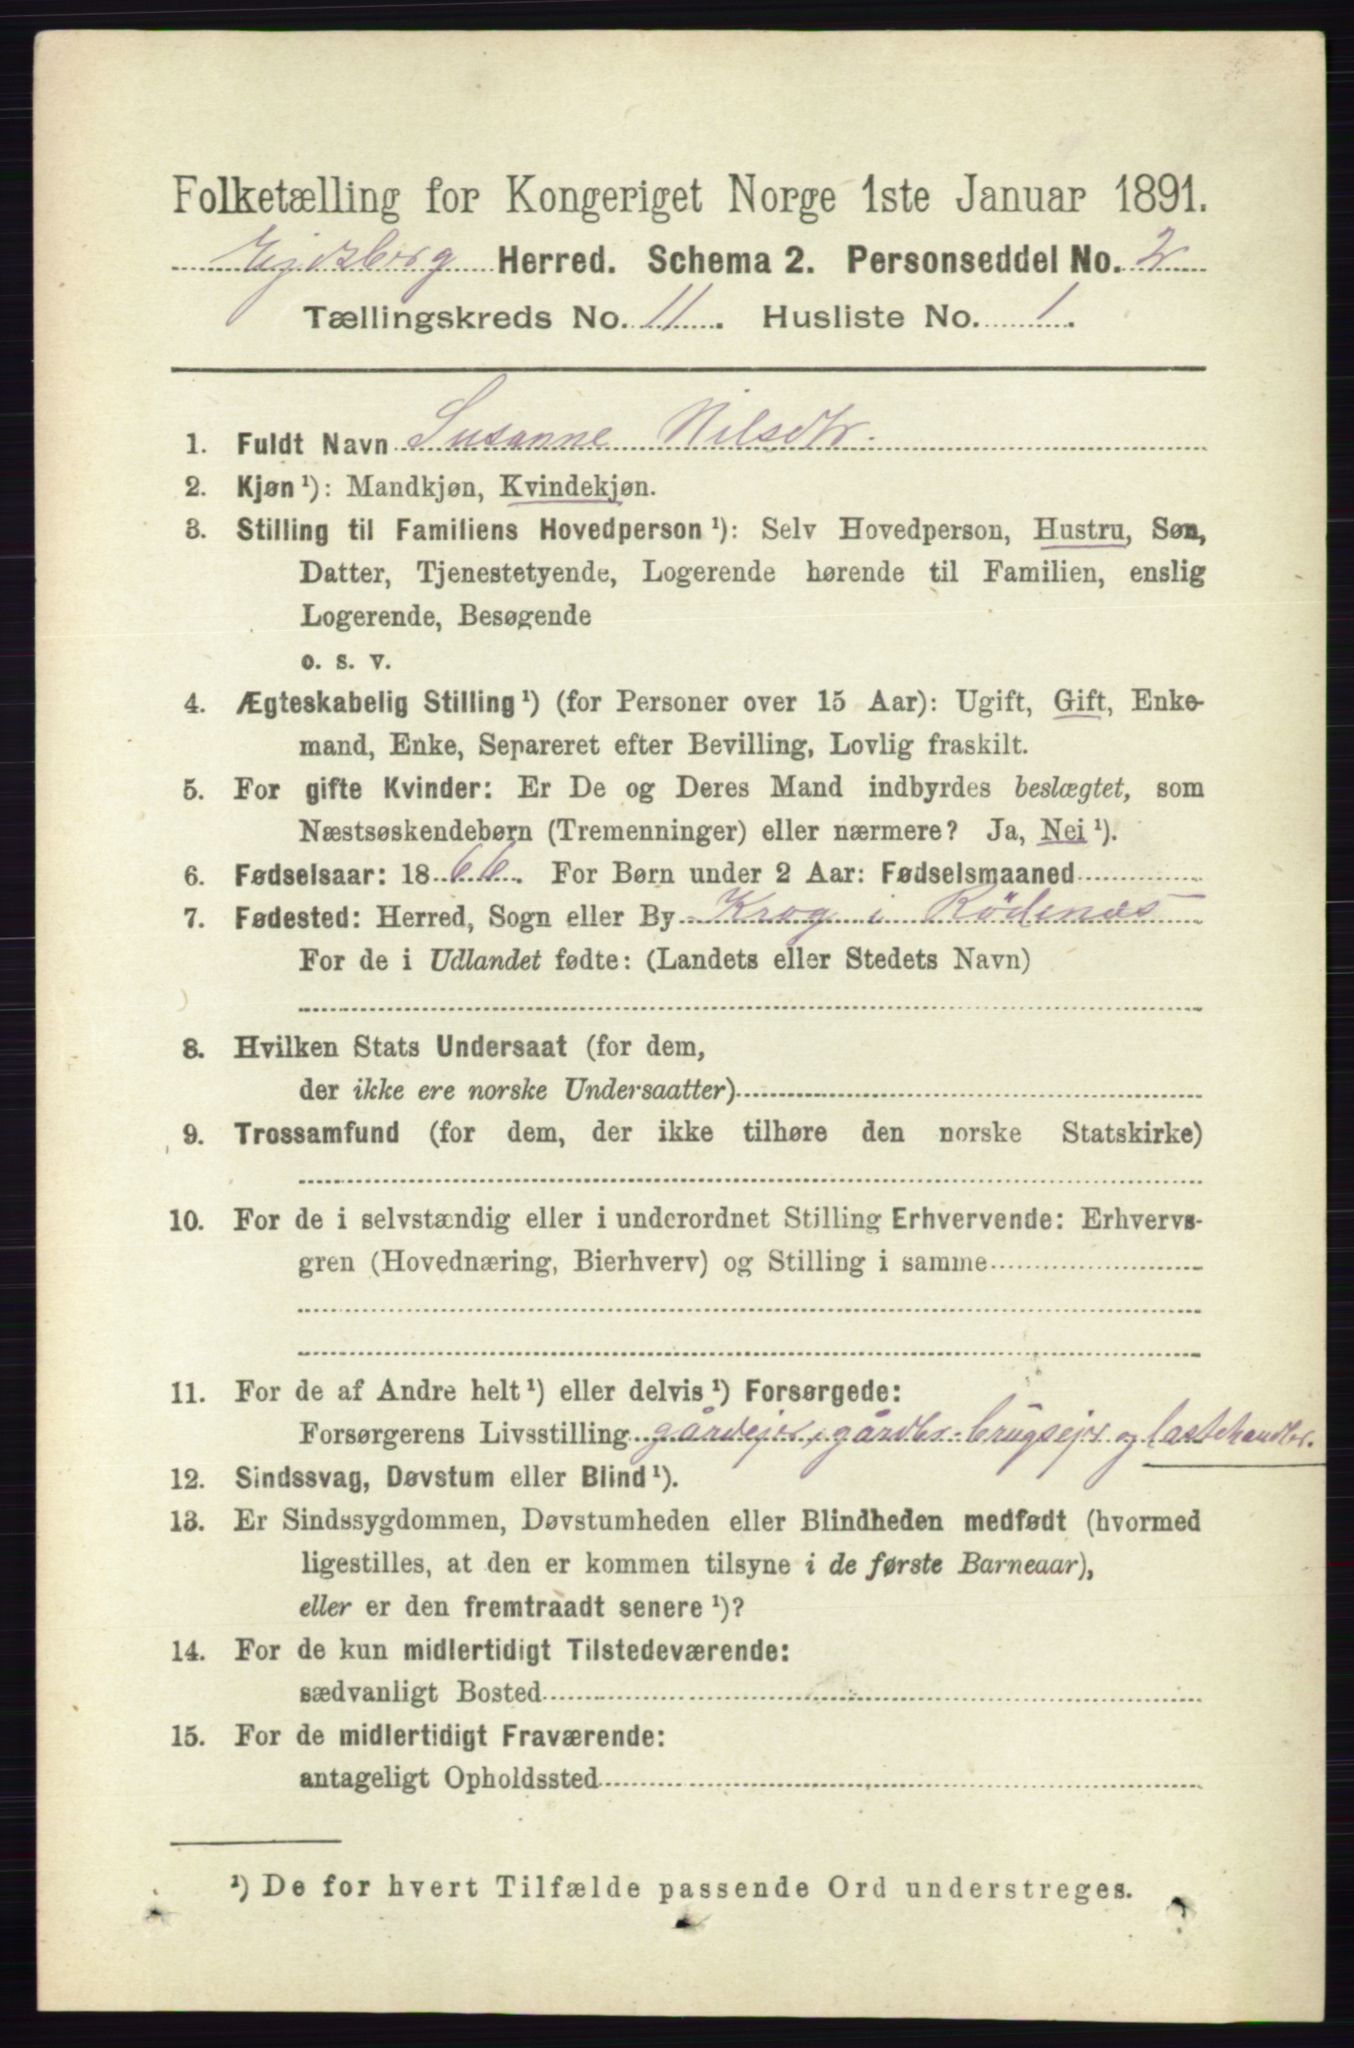 Folketælling for Kongeriget Norge 1ste Januar 1891.
Ejdsberg Herred. Schema 2. Personseddel No. 2
Tællingskreds No. 11. Husliste No. 1.
1. Fuldt Navn Susanne Nilsdtr.
2. Kjøn ¹): Mandkjøn, Kvindekjøn.
3. Stilling til Familiens Hovedperson ¹): Selv Hovedperson, Hustru, Søn,
Datter, Tjenestetyende, Logerende hørende til Familien, enslig
Logerende, Besøgende
o. s. v.
4. Ægteskabelig Stilling ¹) (for Personer over 15 Aar): Ugift, Gift, Enke-
mand, Enke, Separeret efter Bevilling, Lovlig fraskilt.
5. For gifte Kvinder: Er De og Deres Mand indbyrdes beslægtet, som
Næstsøskendebørn (Tremenninger) eller nærmere? Ja, Nei ¹).
6. Fødselsaar: 1866. For Børn under 2 Aar: Fødselsmaaned
7. Fødested: Herred, Sogn eller By Krog i Rödenæs
For de i Udlandet fødte: (Landets eller Stedets Navn)
8. Hvilken Stats Undersaat (for dem,
der ikke ere norske Undersaatter)
9. Trossamfund (for dem, der ikke tilhøre den norske Statskirke)
10. For de i selvstændig eller i underordnet Stilling Erhvervende: Erhvervs-
gren (Hovednæring, Bierhverv) og Stilling i samme
11. For de af Andre helt ¹) eller delvis ¹) Forsørgede:
Forsørgerens Livsstilling gårdejer, gårdbr. brugsejer og lastehandler.
12. Sindssvag, Døvstum eller Blind ¹).
13. Er Sindssygdommen, Døvstumheden eller Blindheden medfødt (hvormed
ligestilles, at den er kommen tilsyne i de første Barneaar),
eller er den fremtraadt senere ¹)?
14. For de kun midlertidigt Tilstedeværende:
sædvanligt Bosted
15. For de midlertidigt Fraværende:
antageligt Opholdssted
¹) De for hvert Tilfælde passende Ord understreges.